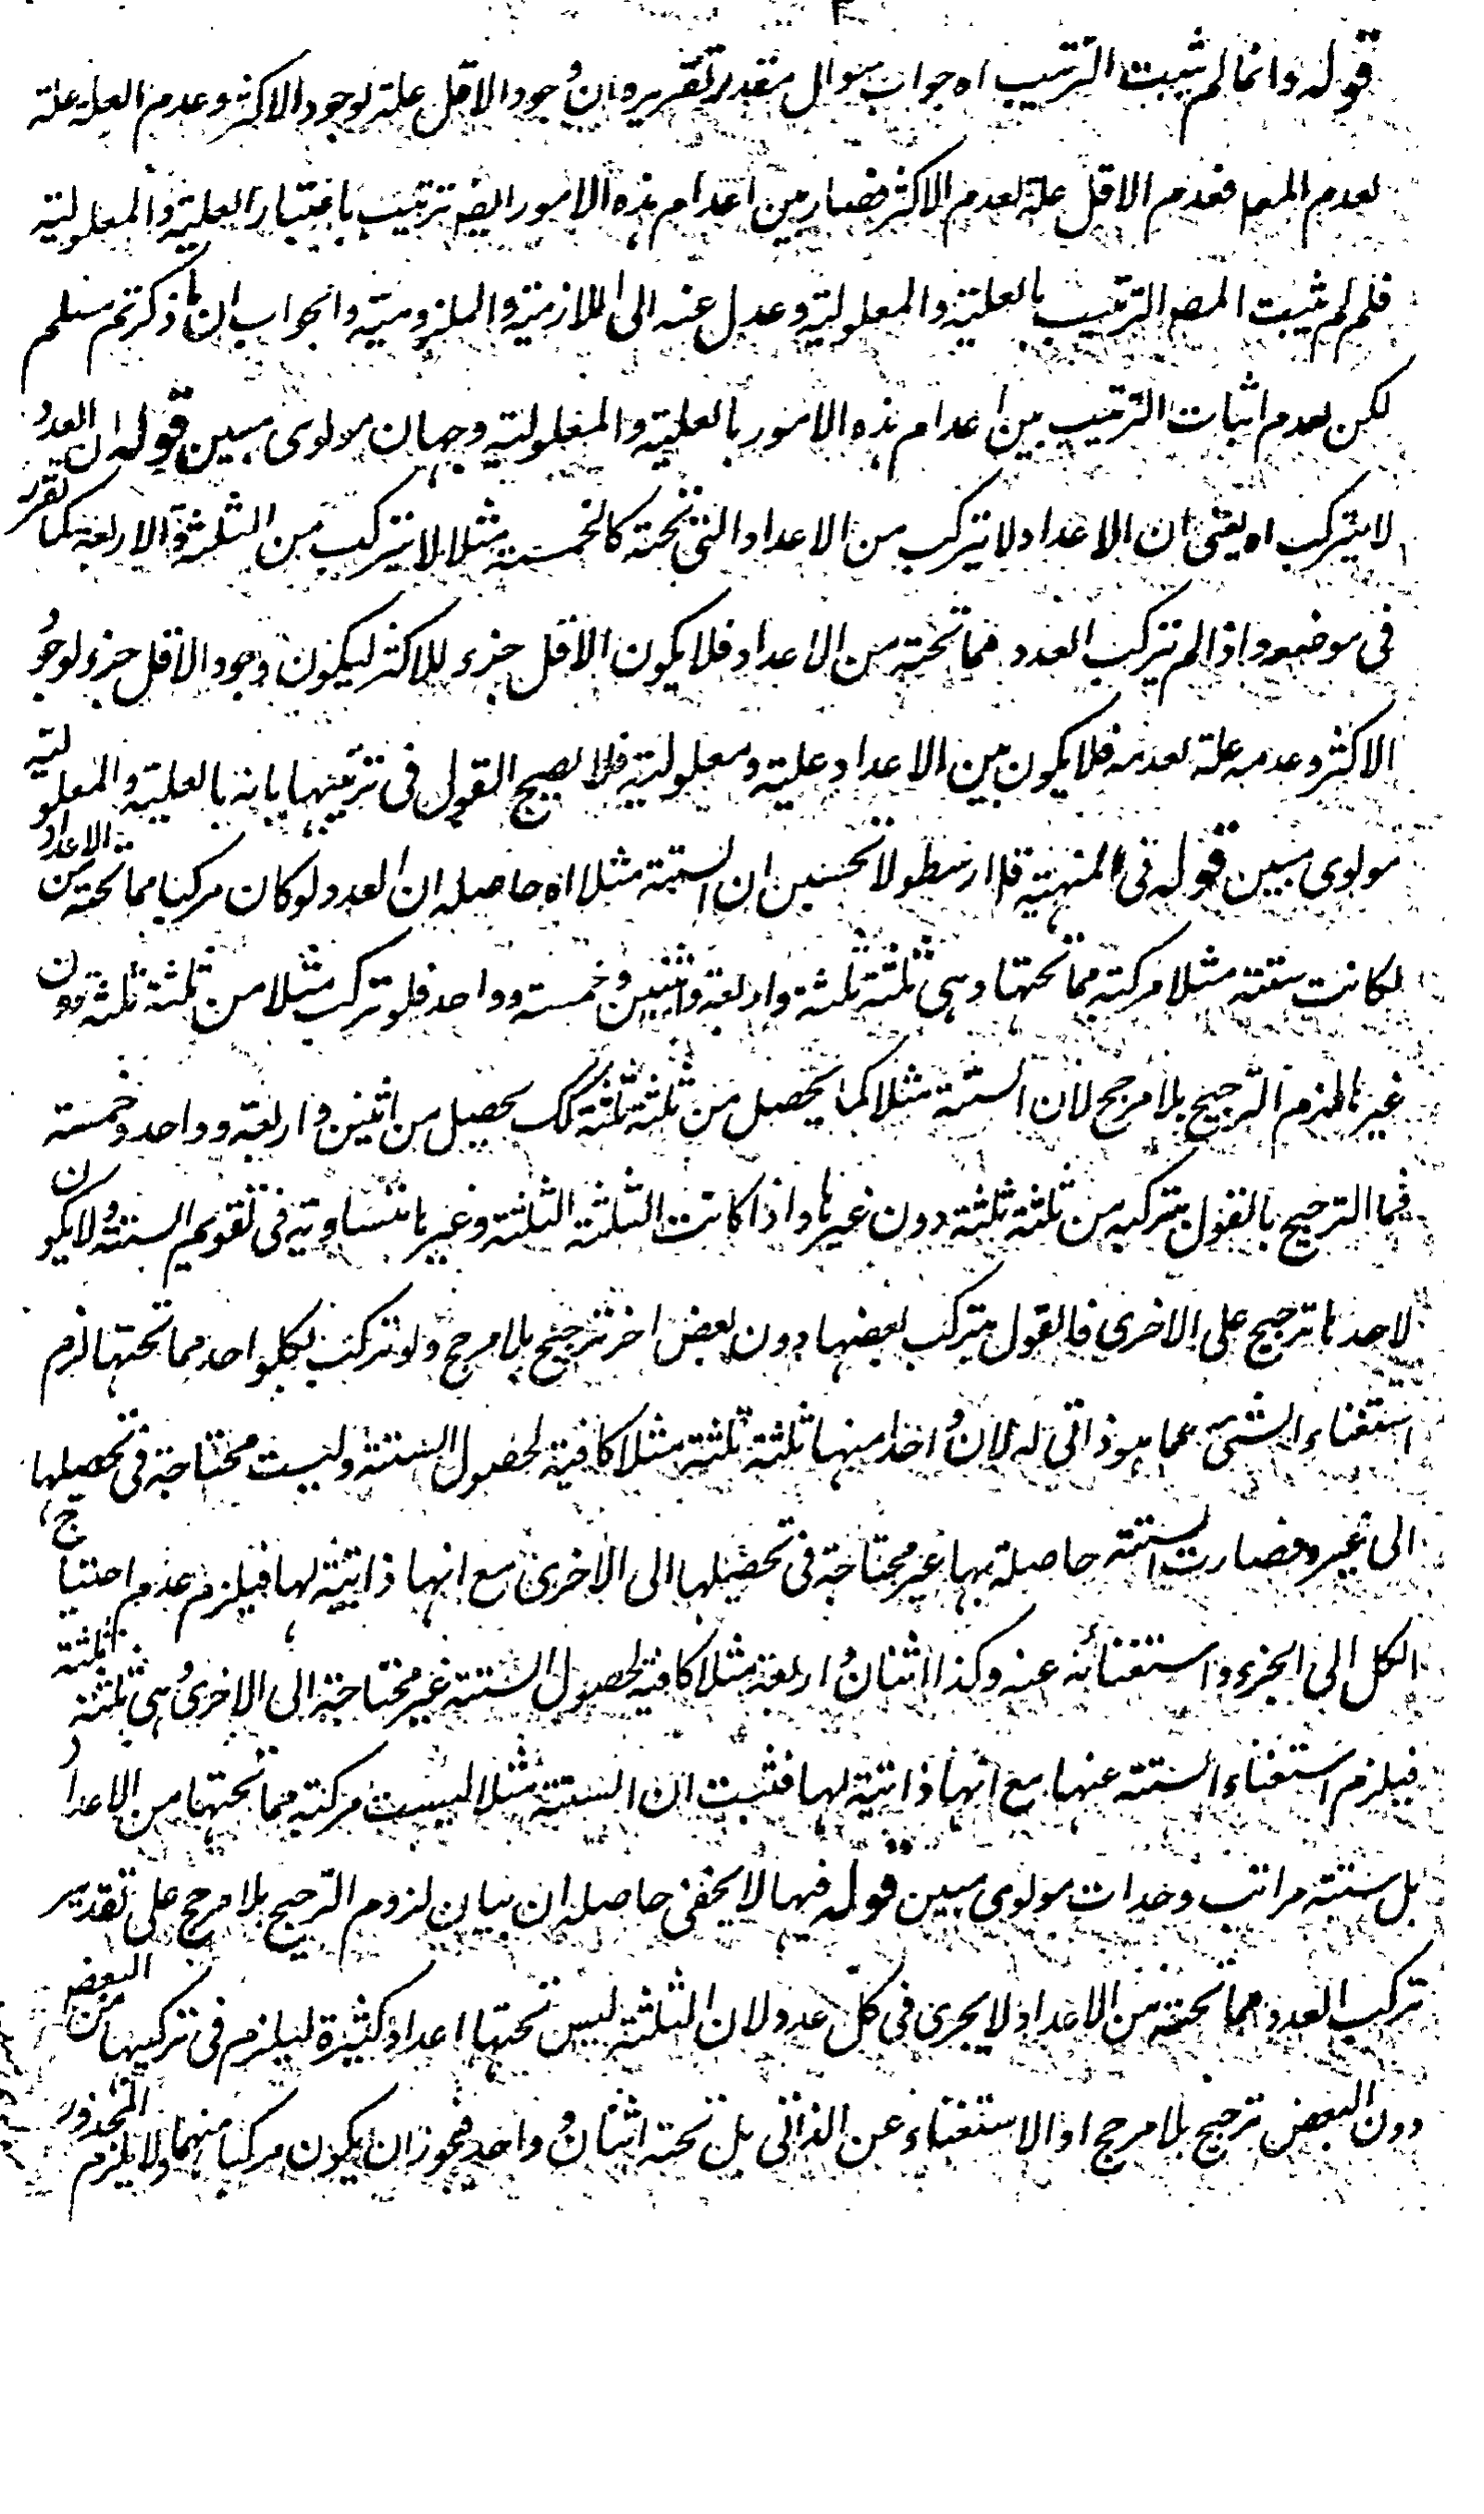 قوله وانما لم يثبت الترتيب اه جواب سوال مقدر تقريره ان وجود الاقل علة لوجود الاكثر وعدم العلة علة
لعدم المعلـ فعدم الاقل علة لعدم الاكثر فصار بين اعدام هذه الامور ايضـ ترتيب باعتبار العلية والمعلولية
فلم لم يثبت المصـ الترتيب بالعلية والمعلولية وعدل عنه الى اللازمية والملزومية والجواب ان ما ذكرتم مسلم
لكن لعدم اثبات الترتيب بين اعدام هذه الامور بالعلية والمعلولية وجهان مولوى مبين قوله ان العدد
لا يتركب اه يعنى ان الاعداد لا تتركب من الاعداد التى تحته كالخمسة مثلا لا يتركب من الثلثة والاربعة كما تقرر
فى موضعه واذا لم يتركب العدد مما تحته من الاعداد فلا يكون الاقل جزء للاكثر ليكون وجود الاقل جزء لوجود
الاكثر وعدمه علة لعدمه فلا يكون بين الاعداد علية ومعلولية فلا يصح القول فى ترتيبها بانه بالعلية والمعلولية
مولوى مبين قوله فى المنهية قال ارسطو لا تحسبن ان الستة مثلا اه حاصله ان العدد لو كان مركبا مما تحته من الاعداد
لكانت ستة مثلا مركبة مما تحتها وهى ثلثة ثلثة واربعة واثنين وخمسة وواحد فلو تركب مثلا من ثلثة ثلثة دون
غيرها لزم الترجيح بلا مرجح لان الستة مثلا كما يحصل من ثلثة ثلثة كك يحصل من اثنين واربعة وواحد وخمسة
فما الترجيح بالقول بتركبه من ثلثة ثلثة دون غيرها واذا كانت الثلثة الثلثة وغيرها متساوية فى تقويم الستة ولا يكون
لاحدها ترجيح على الاخرى فالقول بتركب بعضها دون بعض اخر ترجيح بلا مرجح ولو تركب بكلواحد مما تحتها لزم
استغناء الشئ عما هو ذاتى له لان واحدا منها ثلثة ثلثة مثلا كافية لحصول الستة وليست محتاجة فى تحصيلها
الى غيره فصارت الستة حاصلة بها غير محتاجة فى تحصيلها الى الاخرى مع انها ذاتية لها فيلزم عدم احتياج
الكل الى الجزء واستغنائه عنه وكذا اثنان واربعة مثلا كافية لحصول الستة غير محتاجة الى الاخرى وهى ثلثة ثلثة
فيلزم استغناء الستة عنها مع انها ذاتية لها فثبت ان الستة مثلا ليست مركبة مما تحتها من الاعداد
بل ستة مراتب وحدات مولوى مبين قوله فيها لا يخفى حاصله ان بيان لزوم الترجيح بلا مرجح على تقدير
تركب العدد مما تحته من الاعداد لا يجرى فى كل عدد لان الثلثة ليس تحتها اعداد كثيرة ليلزم فى تركيبها من البعض
دون البعض ترجيح بلا مرجح او الاستغناء عن الذاتى بل تحته اثنان وواحد فيجوز ان يكون مركبا منهما ولا يلزم المحذور